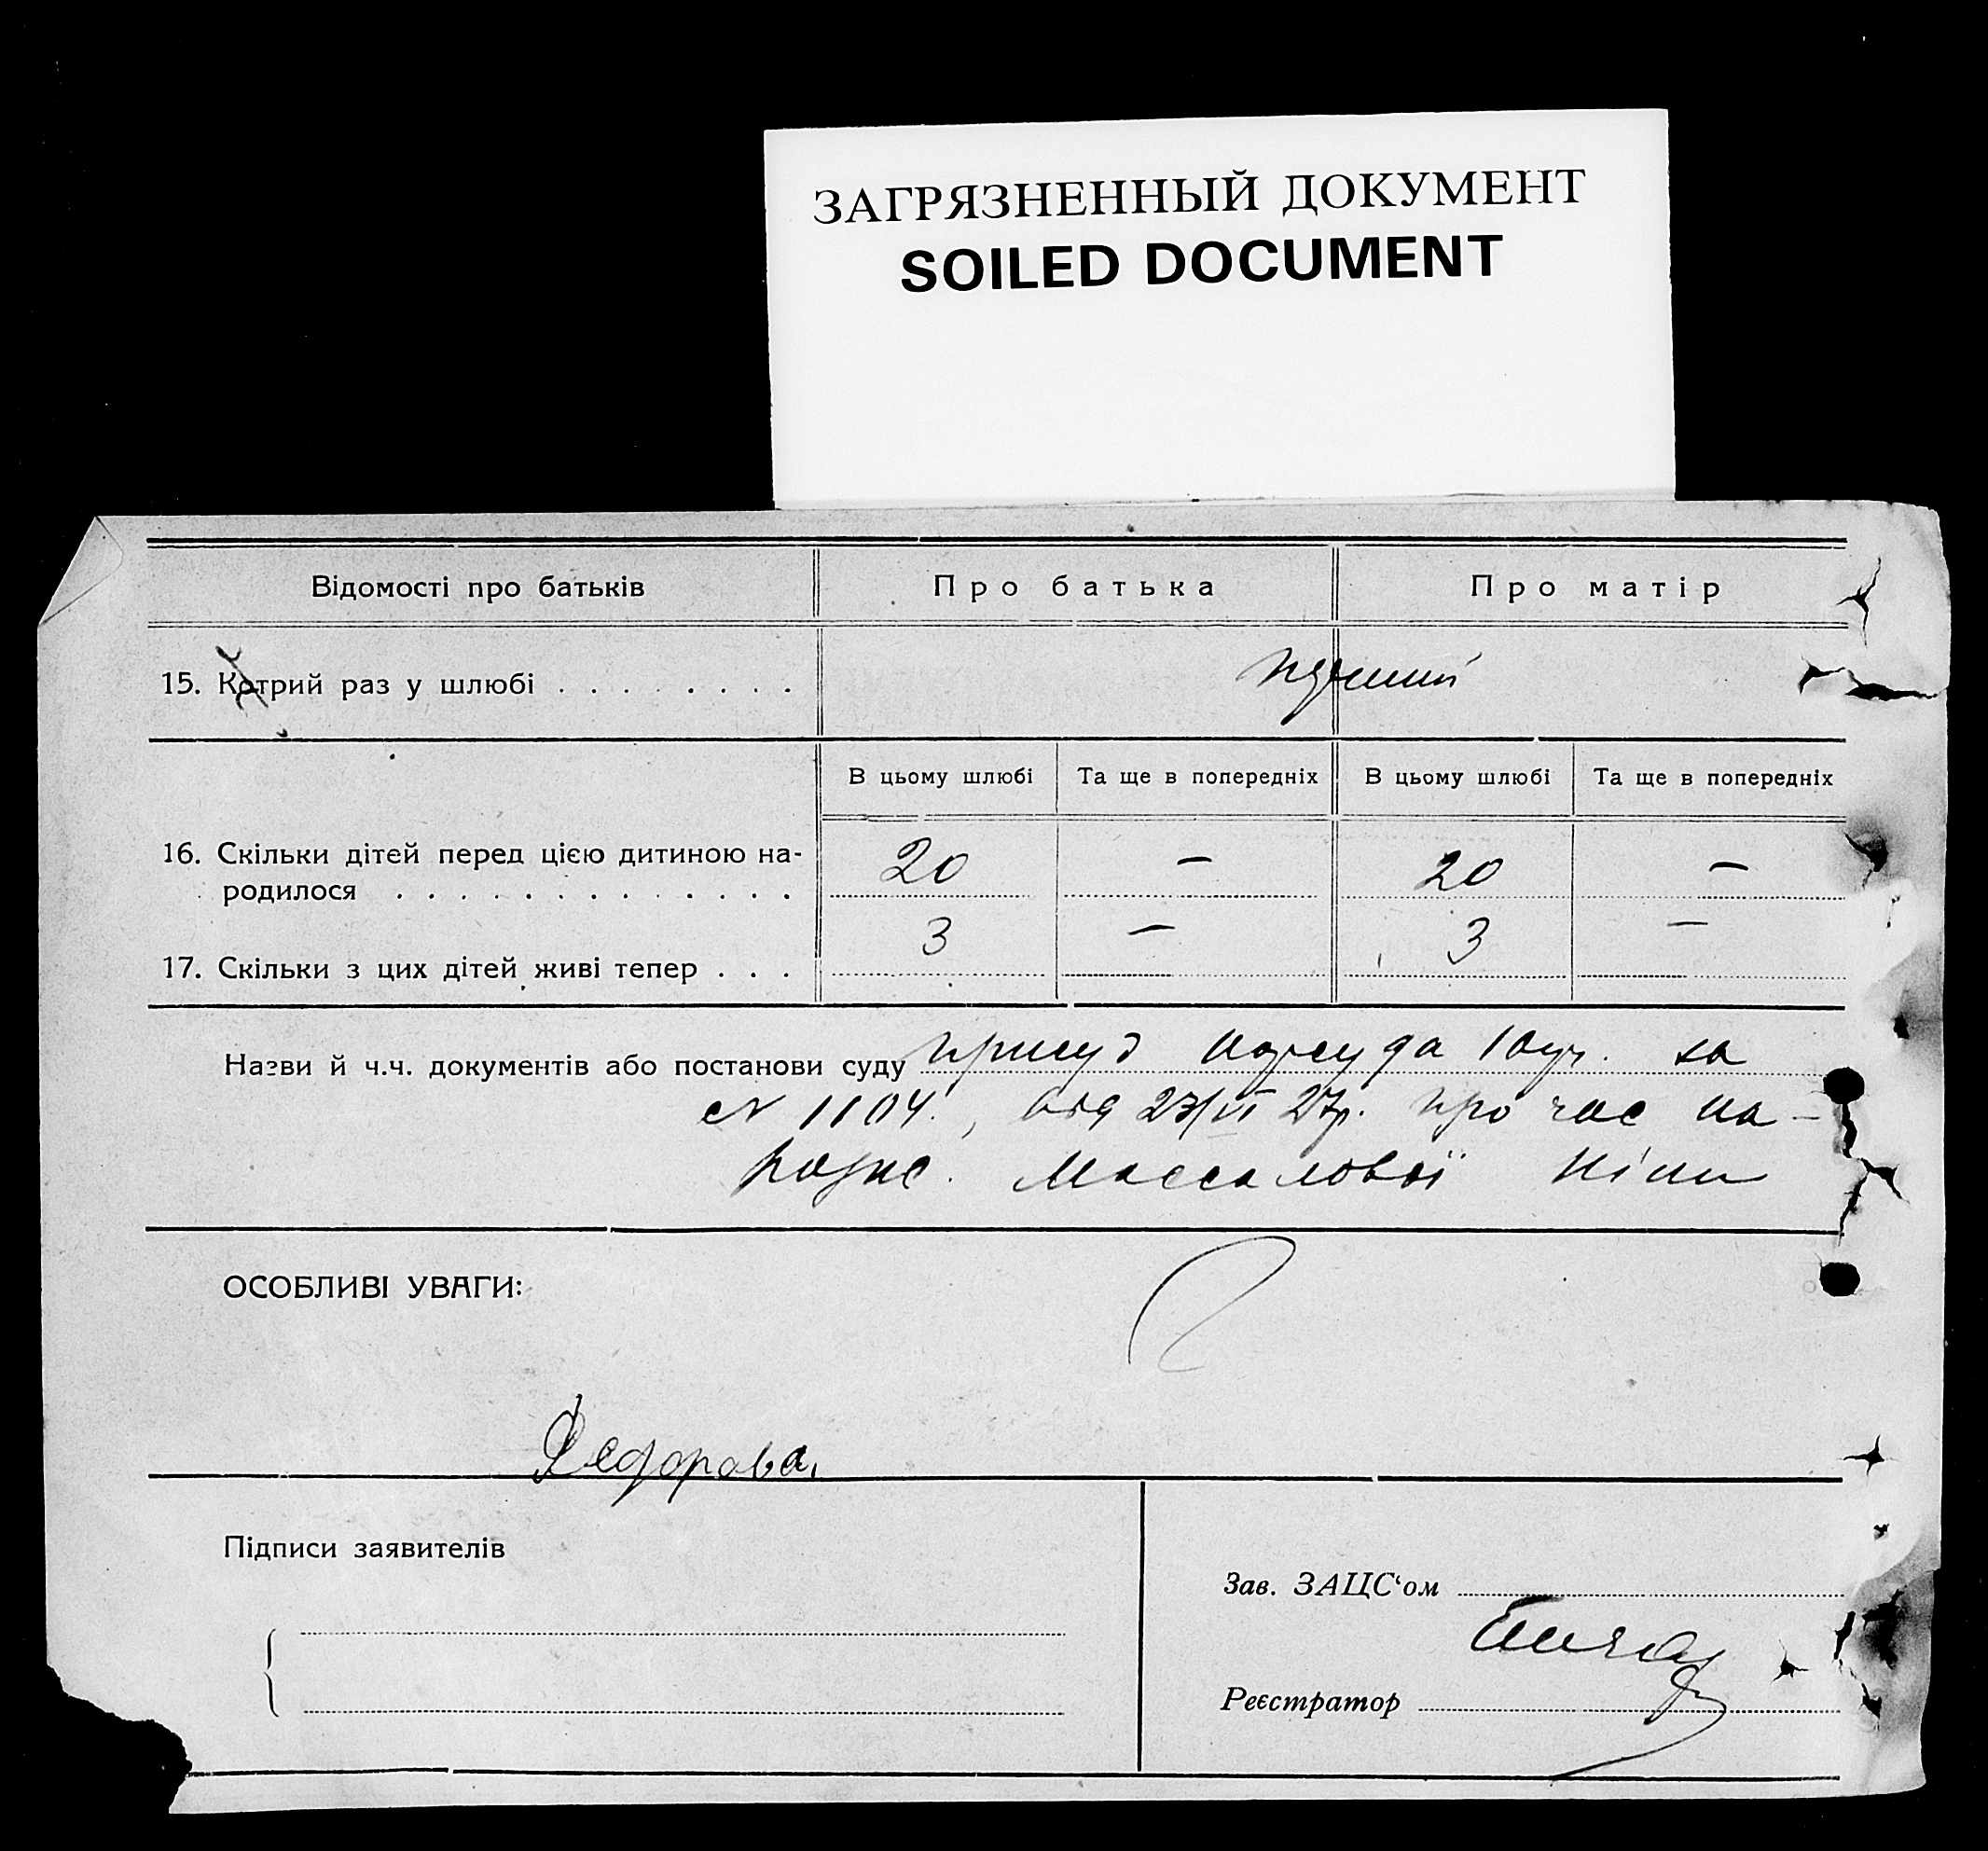 ЗАГРЯЗНЕННЫЙ ДОКУМЕНТ
SOILED DOCUMENT
Відомості про батьків Про батька Про матір
15. Котрий раз у шлюбі . . . . . . . .
В цьому шлюбі Та ще в попередніх В цьому шлюбі Та ще в попередніх
16. Скільки дітей перед цією дитиною на-
родилося . . . . . . . . . . . . . . 20 — 20 —
17. Скільки з цих дітей живі тепер . . . 3 — 3 —
Назви й ч.ч. документів або постанови суду присуд нарсуда 10 за
№ 1104, від 23/VI 27р. про час на-
Массалової Ніни
ОСОБЛИВІ УВАГИ:
Федорова
Підписи заявителів
Зав. ЗАЦС‘ом
Реєстратор